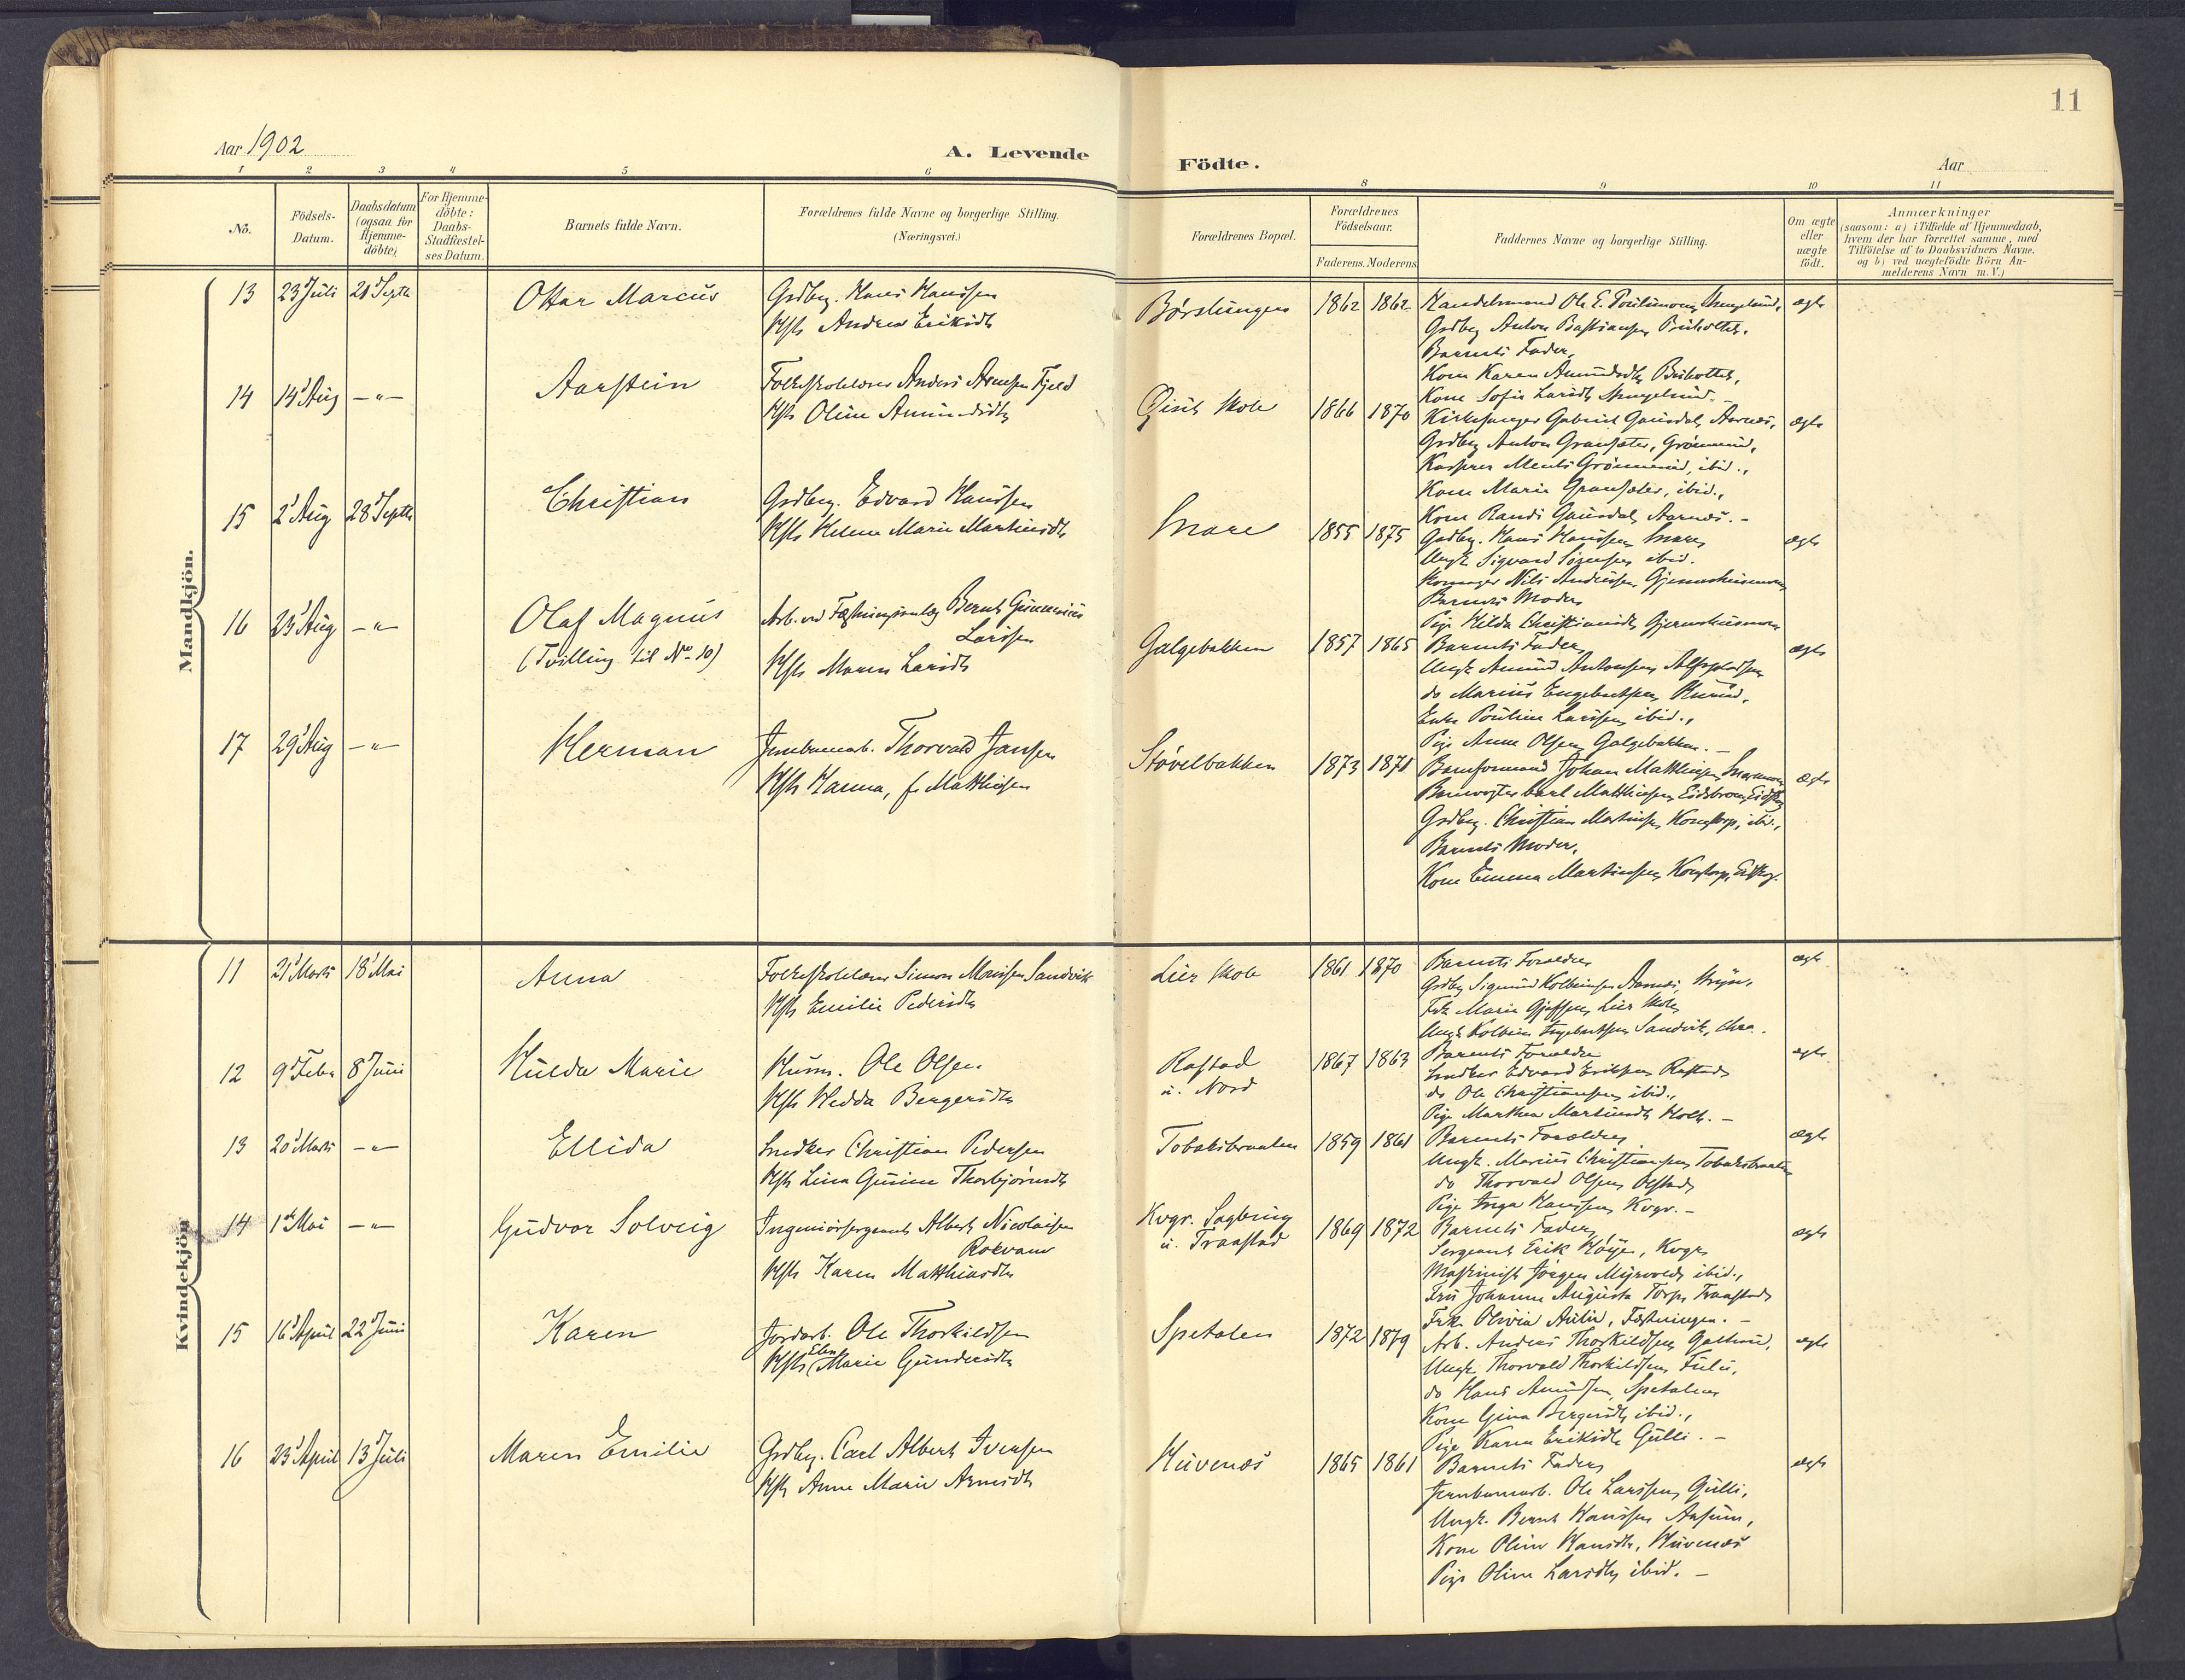 11
Aar 1902
A. Levende Födte.
Aar
1 2 3 4 5 6 8 9 10 11
No.
Födsels-
Datum.
Daabsdatum
(ogsaa for
Hjemme-
döbte).
For Hjemme-
döbte:
Daabs-
Stadfæstel-
ses Datum.
Barnets fulde Navn.
Forældrenes fulde Navne og borgerlige Stilling.
(Næringsvei.)
Forældrenes Bopæl.
Forældrenes
Födselsaar.
Faderens. Moderens
Faddernes Navne og borgerlige Stilling.
Om ægte
eller
uægte
födt.
Anmærkninger
(saasom: a) i Tilfælde af Hjemmedaab,
hvem der har forrettet samme, med
Tilföielse af to Daabsvidners Navne.
og b) ved uægtefödte Börn An-
melderens Navn m. V.)
Mandkjön.
13 23 Juli 21 Septb Ottar Marcus
Grdbrg. Hans Hanssen
Hst Andrea Eriksdt
Børstingen 1862 1862 ægte
Handelsmand Ole E.
Grdbrg Anton Bastiansen
Barnets Fader,
Kone Karen Amundsdt
Kone Sofie Larsdt
14 14 Aug —"— Aarstein
Folkeskolelærer Anders Arnesen Fjeld
Hst Oline Amundsdt
Skole 1866 1870 ægte
Kirkesanger Gabriel Gausdal, Aarnes,
Grdbrg Anton Gransæter, Grønnerud,
Ments Grønnerud, ibid.,
Kone Marie Gransæter, ibid.,
Kone Randi Gausdal, Aarnes. -
15 2 Aug 28 Septb Christian
Grdbrg. Edvard Hanssen
Hst Helene Marie Martinsdt
Snare 1855 1875 ægte
Grdbrg. Hans Hanssen Snare
Ungk Sigvard ibid.
Nils Andersen
Barnets Moder
Pige Hilda Christiansdt
16 23 Aug —"— Olaf Magnus
(Tvilling til No 10)
Arb. ved Fæstningsanlæg Bernt Gunerius
Larssen
Hst Maren Larsdt
Galgebakken 1857 1865 ægte
Barnets Fader
Ungk Amund Antonsen
do Marius Engebretsen
Enke Pauline Larssen ibid.,
Pige Anna Olsen Galgebakken. -
17 29 Aug —"— Herman
Jernbanearb. Thorvald Jansen
Hst Hanna, f. Matthisen
Støvelbakken 1873 1871 ægte
Baneformand Johan Matthisen
Banevogter Carl Matthisen
Grdbrg. Christian Martinsen Kongstorp, ibid.,
Barnets Moder,
Kone Emma Martinsen, Kongstorp, Eidsberg.
Kvindekjön
11 21 Marts 18 Mai Anna
Folkeskolelærer Simon Sandvik
Hst Emilie Pedersdt
Lier Skole 1861 1870 ægte
Barnets Forældre
Grdbrg Sigmund Kolbeinsen Aarnes,
Frk Marie Lier Skole
Ungk Kolbein Ingebretsen Sandvik,
12 9 Febr 8 Juni Hulda Marie
Husm. Ole Olsen
Hst Hedda Bergersdt
Rastad
u. Nord 1867 1863 ægte
Barnets Forældre
Snedker Edvard Eriksen Rastad
do Ole Christiansen ibid.,
Pige Marthea Martinsdt Holt. -
13 20 Marts —"— Ellida
Snedker Christian Pedersen
Hst Lina Gurine Thorbjørnsdt
Tobaksbraaten 1859 1861 ægte
Barnets Forældre
Ungk. Marius Christiansen, Tobaksbraaten
do Thorvald Olsen
Pige Inga Hanssen, Kvgr. -
14 1 Mai —"— Gudvor Solveig
Ingeniørsergeant Albert Nicolaisen
Rokvam
Hst Karen Matthiasdt
Kvgr. Sagbrug
u. Traastad 1869 1872 ægte
Barnets Fader,
Sergeant Erik Høye, Kvgr
Maskinist Jørgen Myrvold, ibid.,
Fru Johanne Augusta Torp, Traastad
Frk. Olivia Aulie, Fæstningen. -
15 16 April 22 Juni Karen
Jordarb. Ole Thorkildsen
Hst Elen Marie Gundersdt
Spetalen 1872 1879 ægte
Arb. Anders Thorkildsen
Ungk. Thorvald Thorkildsen
do Hans Amundsen, Spetalen
Kone Gina Bergersdt, ibid.,
Pige Karen Eriksdt Gulli. -
16 23 April 13 Juli Maren Emilie
Grdbrg. Carl Albert Iversen
Hst Anne Marie Arnesdt
Huvenes 1865 1861 ægte
Barnets Fader
Jernbanearb. Ole Larssen, Gulli,
Ungk. Bernt Hanssen
Kone Oline Hansdt, Huvenes
Pige Oline Larsdt, ibid. -